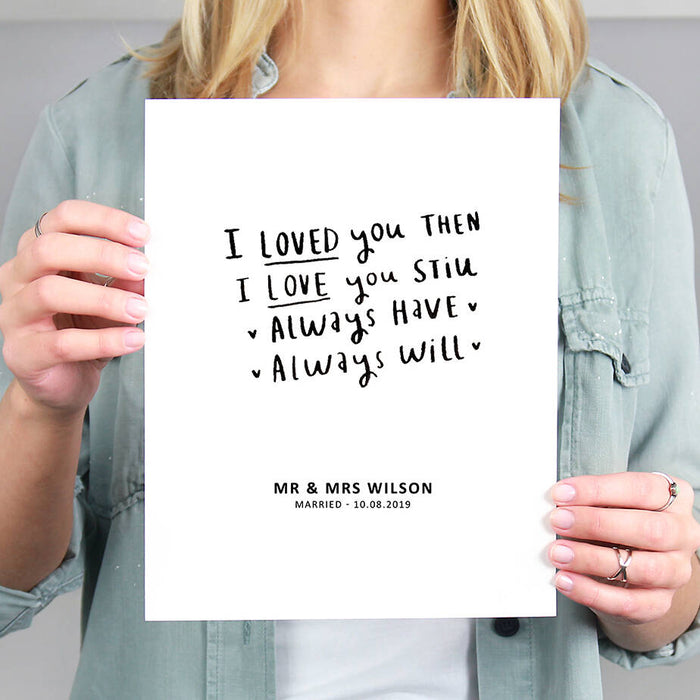 I LOVED you THEN
I LOVE you STiLL
Always HAVE
Always will
MR & MRS WILSON
MARRIED - 10.08.2019